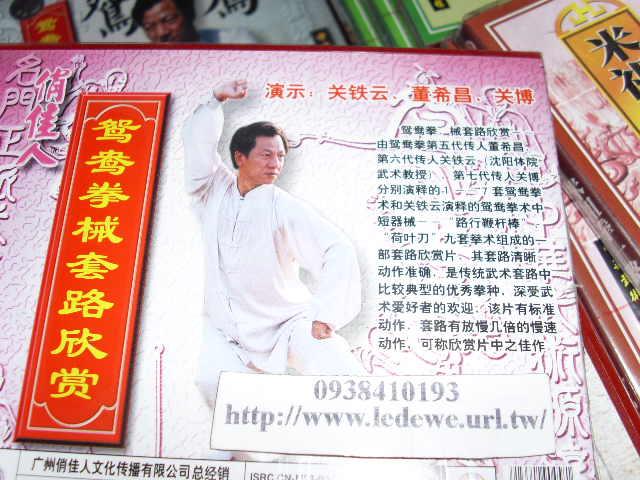 鸳鸯
米祖
名門正
俏佳人
演示：关铁云、董希昌、关博
鸳鸯拳械套路欣赏
鸳鸯拳、械套路欣赏
由鸳鸯拳第五代传人董希昌、
第六代传人关铁云（沈阳体院
武术教授）、第七代传人关博
分别演释的1——7套鸳鸯拳
术和关铁云演释的鸳鸯拳术中
短器械——“路行鞭杆棒”、
“荷叶刀”九套拳术组成的一
部套路欣赏片，其套路清晰、
动作准确，是传统武术套路中
比较典型的优秀拳种，深受武
术爱好者的欢迎；该片有标准
动作、套路有放慢几倍的慢速
动作，可称欣赏片中之佳作。
0938410193
http://www.ledewe.url.tw/
广州俏佳人文化传播有限公司总经销
ISRC CN-